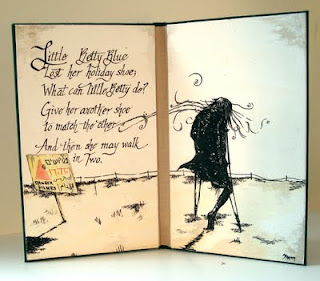 Little Betty Blue
Lost her holiday shoe;
What can little Betty do?
Give her another shoe
to match the other
And then she may walk
in Two.
DANGER
MINES